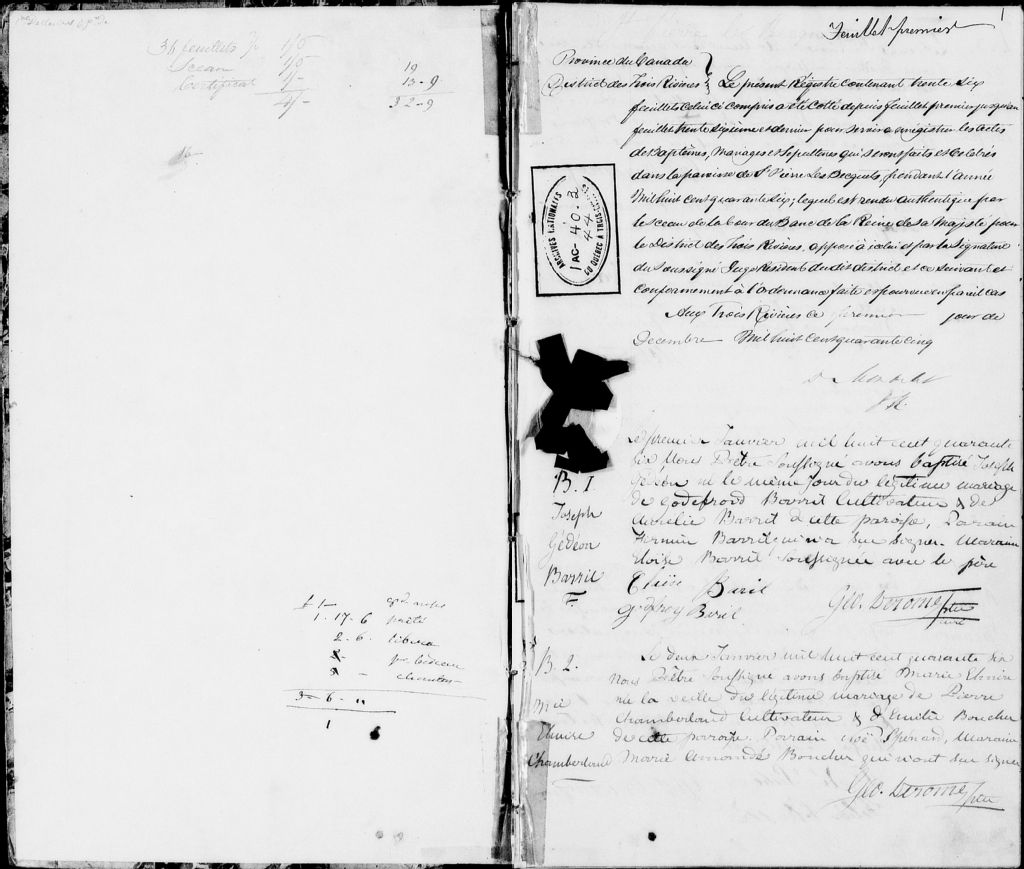 36 feuillets p 1/5
Sceau 1/5 19
Certificat 1/- 13-9
4/- 32-9
£ 1-
1. 17. 6
2. 6. libera
3 - 6 - 11
1
1
Feuillet premier
Province du Canada
District des Trois Rivières Le présent Régistre contenant trente six
feuillets celui ci compris a été Cotté depuis feuillet premier jusqu'au
feuillet trente sixième et dernier pour servir a enrégistrer les actes
de Baptêmes, Mariages et Sepultures qui seront faits et Celebrés
dans la paroisse de St Pierre Les Becquets, pendant l'année
Mil huit Cent quarante six; lequel est rendu Authentique par
le sceau de la Cour du Banc de la Reine de sa Majesté pour
le District des Trois Rivières, apposé à icelui et par la Signature
du Soussigné Juge Resident du dit district et ce suivant et
Conformement à l'Ordonnance faite et pourvue en pareil cas
Aux Trois Rivières ce premier jour de
Decembre Mil huit Cent quarante Cinq
ARCHIVES NATIONALES
1 AC-40.2
44
DU QUÉBEC À TROIS-RIVIÈRES
B. 1
Joseph
Gédéon
Barril
Le premier Janvier mil huit cent quarante
six Nous Prêtre Soussigné avons baptisé Joseph
Gédéon né le même jour du légitime mariage
de Godefroid Barril Cultivateur & de
Aurelie Barril de cette paroisse. Parain
Firmin Barril qui n'a su signer. Maraine
Eloïse Barril Soussignée avec le père
Eloïse Baril
Godfroy Beril Geo. Derome Ptre
curé
B. 2.
Mie
Elmire
Chamberland
Le deux Janvier mil huit cent quarante six
Nous Prêtre Soussigné avons baptisé Marie Elmire
née la veille du légitime mariage de Pierre
Chamberland Cultivateur & d'Emilie Boucher
de cette paroisse. Parrain Noé Spénard, Maraine
Marie Boucher qui n'ont su signer
Geo. Derome Ptre